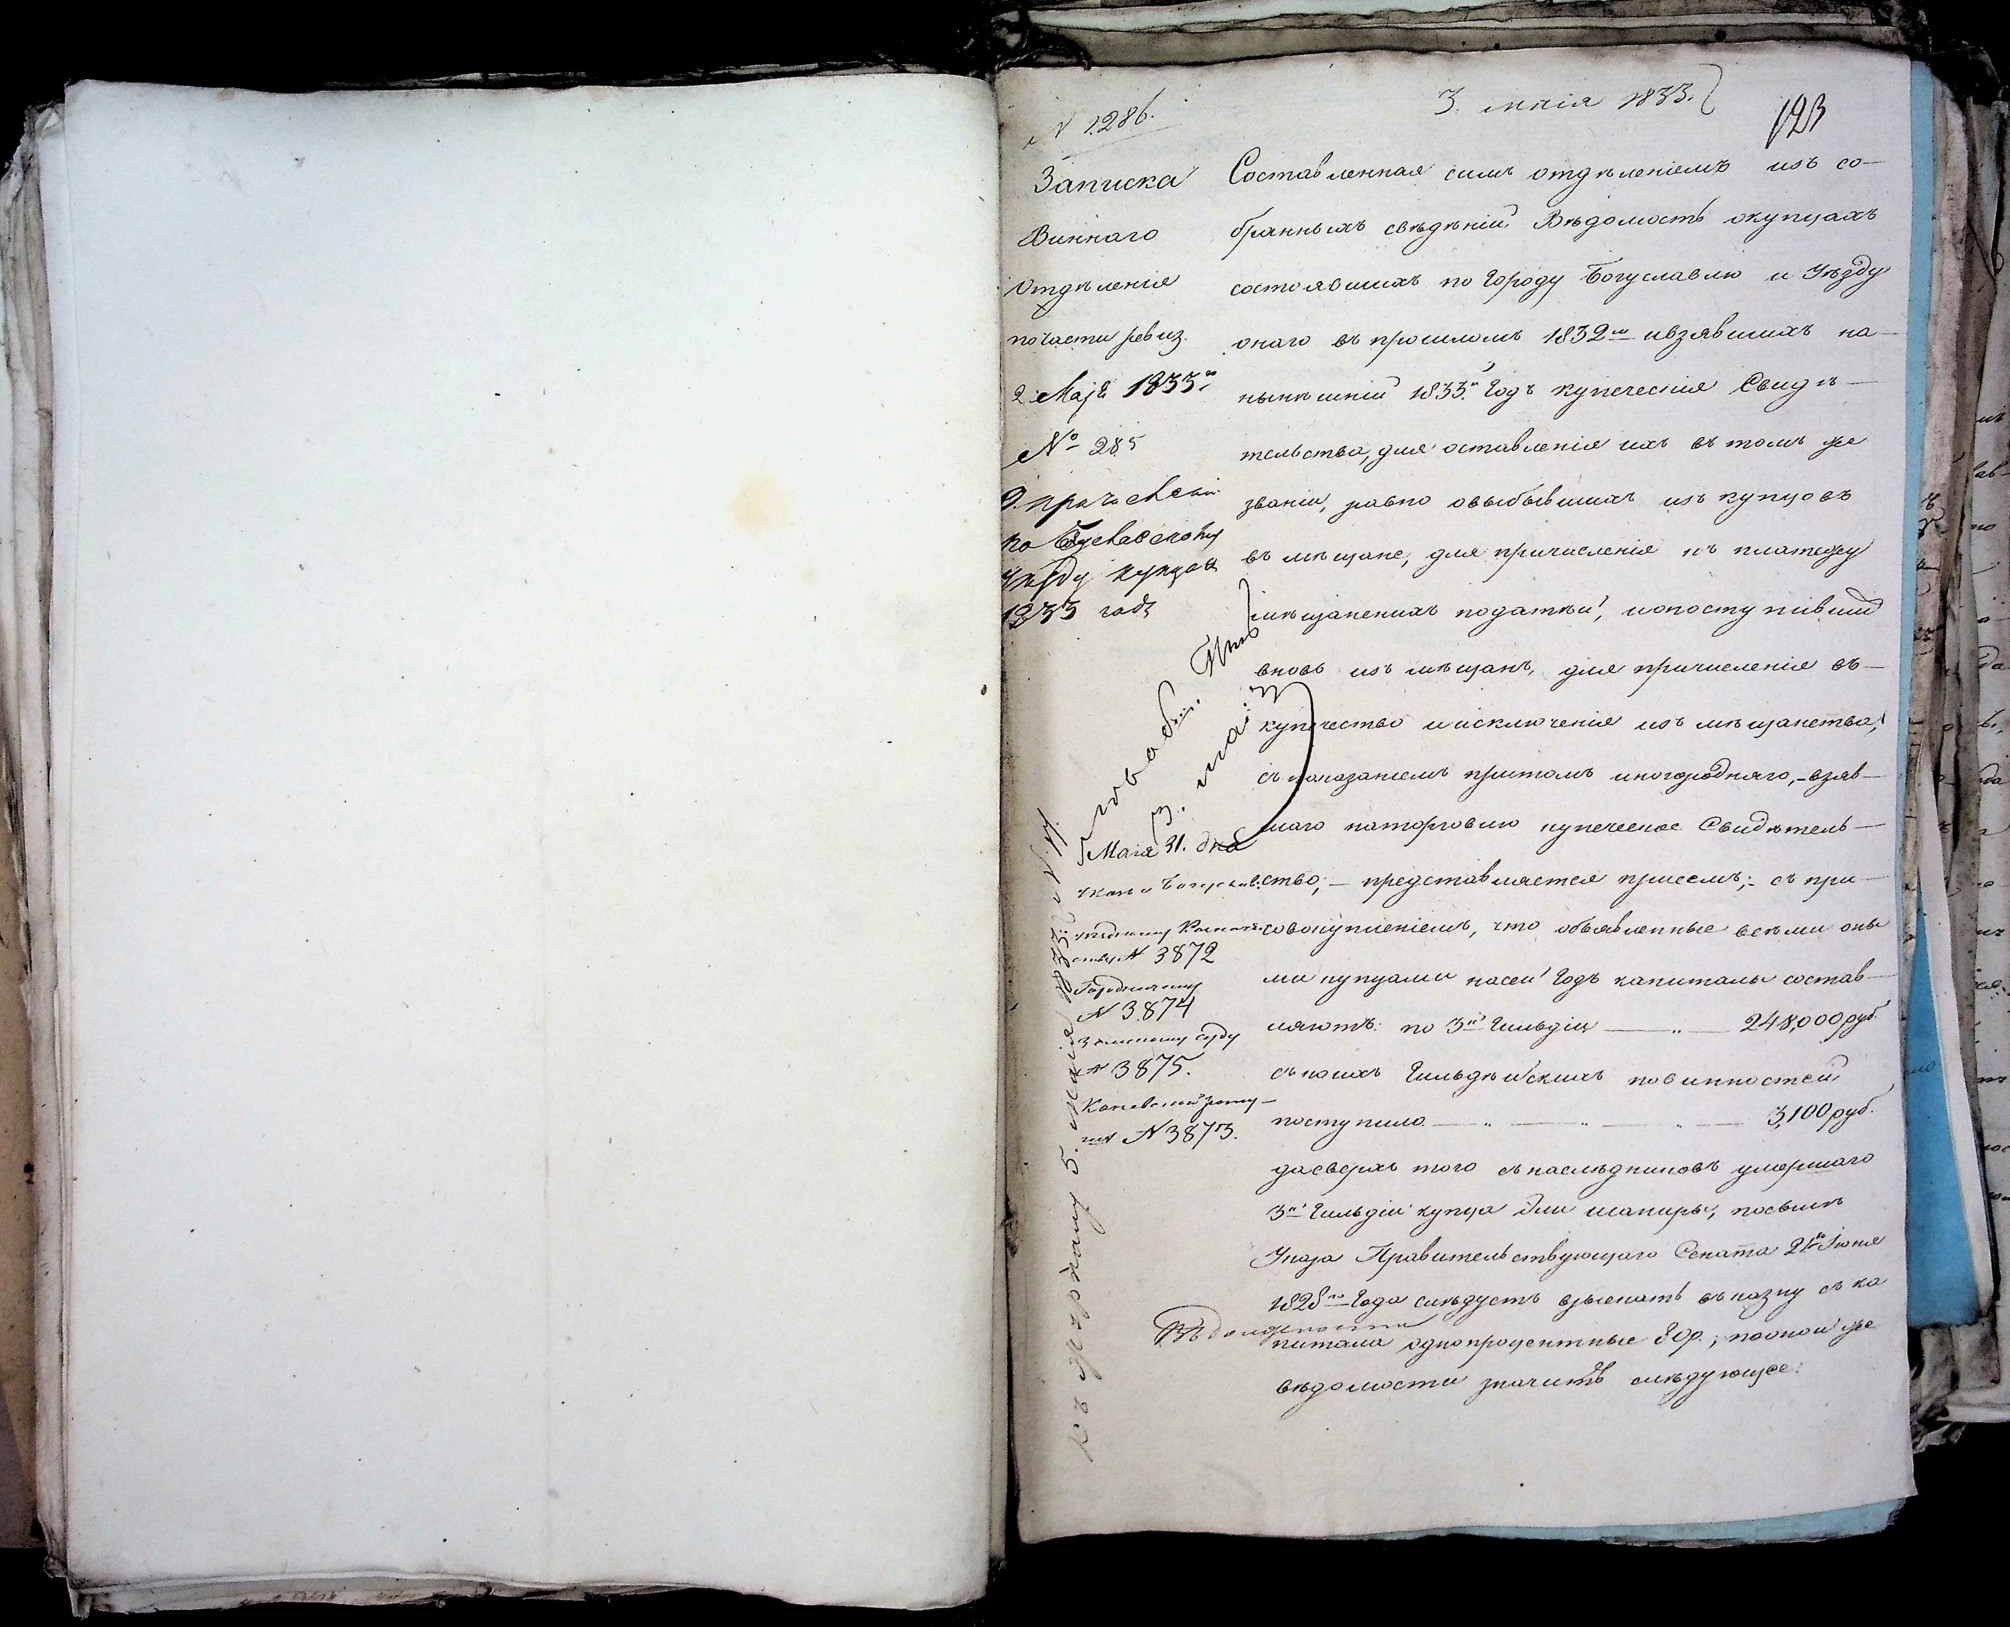 N 1286.
3. маія 1833.
123
Записка
Виннаго
Отдѣленія
по части ревиз.
2 Маја 1833го
№ 285
по Богуславскому
уѣзду купцов
1833 года
Составленная симъ отдѣленіемъ изъ со-
бранныхъ свѣдѣній Вѣдомость окупцахъ
состоявшихъ по Городу Богуславлю и Уѣзду
онаго въ прошломъ 1832мъ ивзявшихъ на
нынѣшній 1833й Годъ купеческія Свидѣ-
тельства, для оставленія ихъ въ томъ же
званіи, равно овыбывшихъ изъ купцовъ
въ мѣщане, для причисленія къ платежу
мѣщанскихъ податѣй, иопоступившихъ
вновь изъ мѣщанъ, для причисленія въ-
купечество иисключенія изъ мѣщанства,
съ показаніемъ притомъ иногороднаго, взяв-
шаго наторговлю купеческое Свидѣтель-
ство; - представляется присемъ; съ при-
совокупленіемъ, что объявленные всѣми оны
ми купцами насей Годъ капиталы состав-
ляютъ: по 3й Гильдіи — „ — 248,000 руб.
съ коихъ Гильдѣйскихъ повинностей
поступило — „ — „ — „ — 3,100 руб.
дасверхъ того съ наслѣдниковъ умершаго
3й Гильдіи купца Эли шапиры, посилѣ
Указа Правительствующаго Сената 21го Іюня
1828го Года слѣдуетъ взыскать въ казну съ ка
питала однопроцентные 80р., поопой же
вѣдомости значитъ слѣдующее:
3. маія
Маія 31. дня
N 3872
Городничему
N 3874
Земскому суду
N 3875.
N 3873.
5. маія 1833